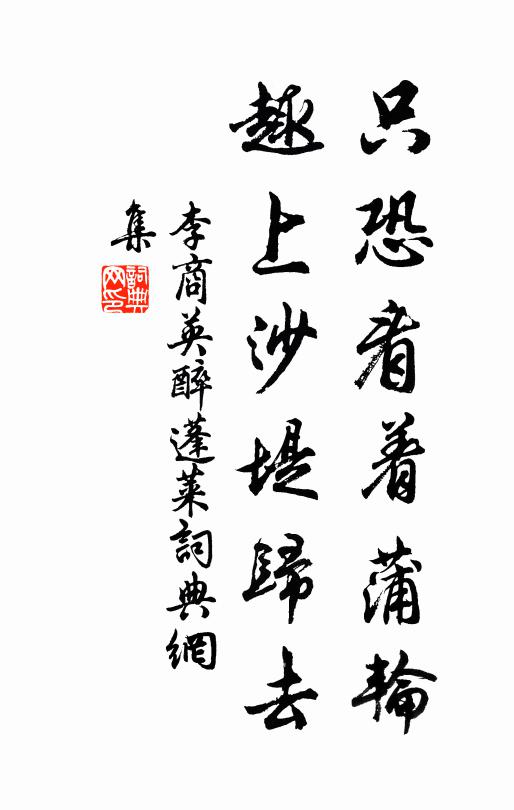 只恐看着蒲輪
趣上沙堤歸去
李商英醉蓬萊詞典網
集
詞典
网印